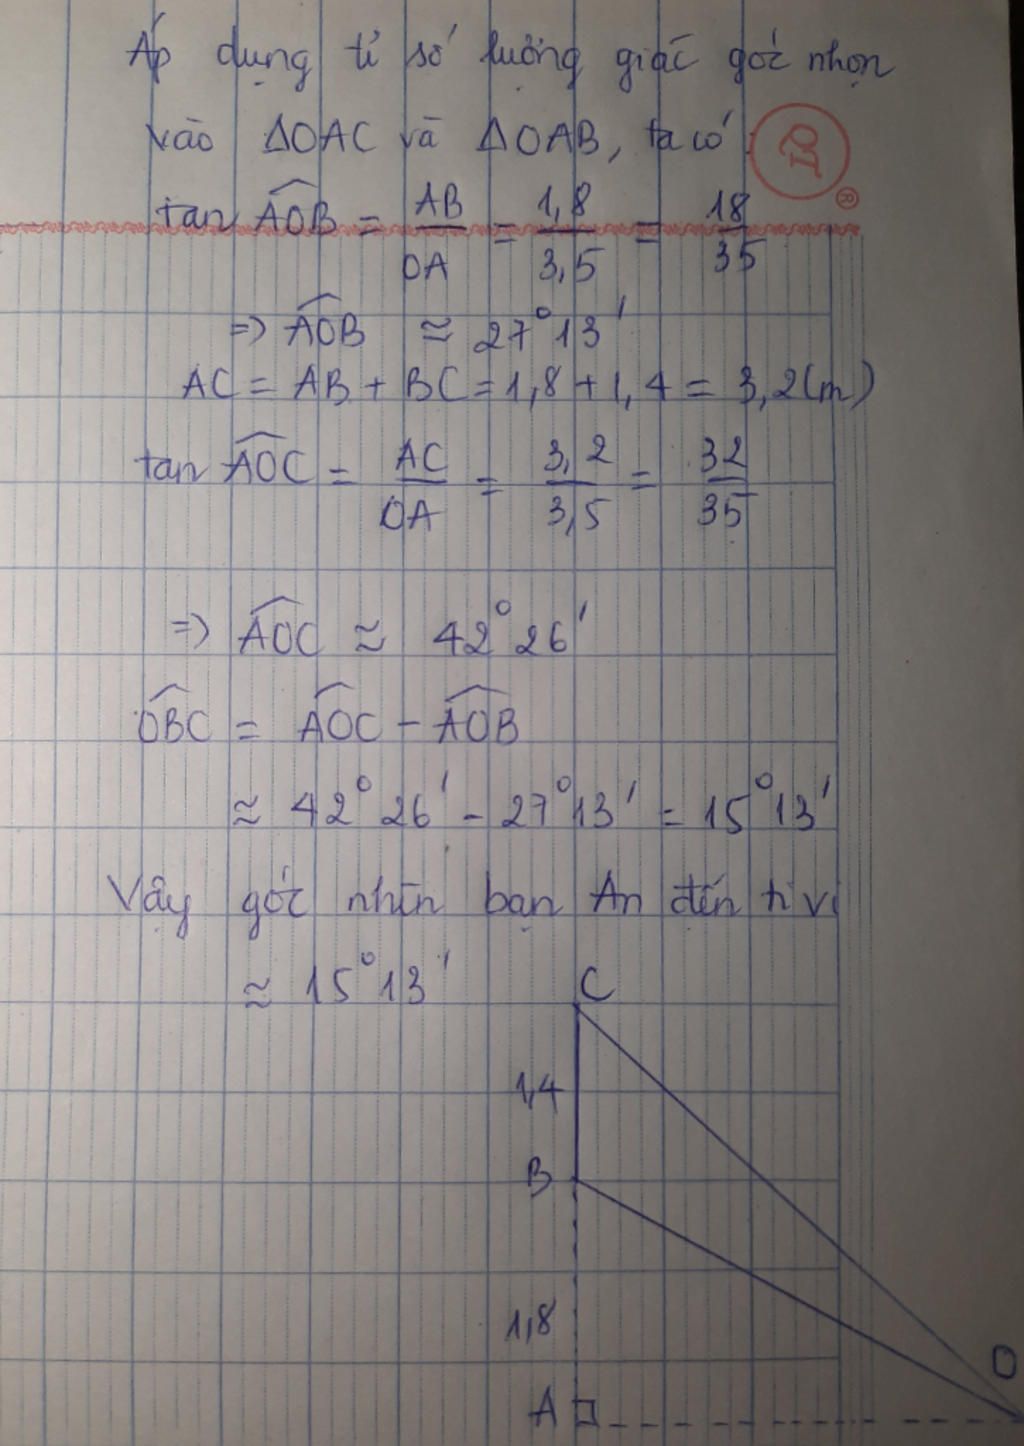 Áp dụng tỉ số lượng giác góc nhọn
vào ΔOAC và ΔOAB, ta có:
tan \widehat{AOB} = AB/OA = 1,8/3,5 = 18/35
=> \widehat{AOB} ≈ 27°13'
AC = AB + BC = 1,8 + 1,4 = 3,2(m)
tan \widehat{AOC} = AC/OA = 3,2/3,5 = 32/35
=> \widehat{AOC} ≈ 42°26'
\widehat{OBC} = \widehat{AOC} - \widehat{AOB}
≈ 42°26' - 27°13' = 15°13'
Vậy góc nhìn bạn An đến ti vi
≈ 15°13'
C
1,4
B
1,8
O
A